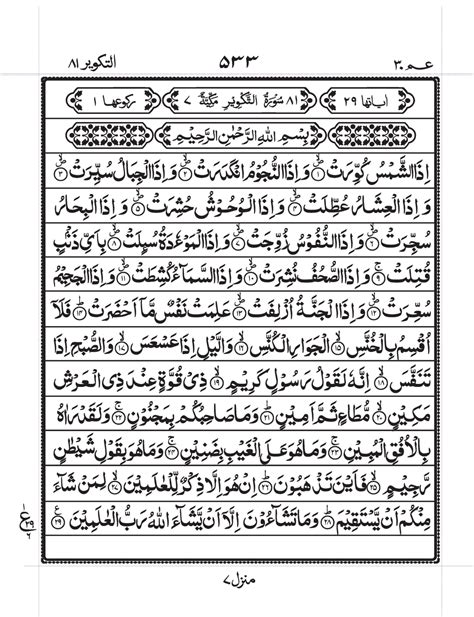 عـمـ ٣٠ ٥٣٣ التكوير ٨١
اٰیاتها ٢٩ ٨١ سُوْرَةُ التَّكْوِيْرِ مَكِّيَّةٌ ٧ رکوعها ١
بِسْمِ اللّٰهِ الرَّحْمٰنِ الرَّحِيْمِ
اِذَا الشَّمْسُ كُوِّرَتْ ١ وَاِذَا النُّجُوْمُ انْكَدَرَتْ ٢ وَاِذَا الْجِبَالُ سُيِّرَتْ ٣
وَاِذَا الْعِشَارُ عُطِّلَتْ ٤ وَاِذَا الْوُحُوْشُ حُشِرَتْ ٥ وَاِذَا الْبِحَارُ
سُجِّرَتْ ٦ وَاِذَا النُّفُوْسُ زُوِّجَتْ ٧ وَاِذَا الْمَوْءٗدَةُ سُىِٕلَتْ ٨ بِاَىِّ ذَنْۢبٍ
قُتِلَتْ ٩ وَاِذَا الصُّحُفُ نُشِرَتْ ١٠ وَاِذَا السَّمَآءُ كُشِطَتْ ١١ وَاِذَا الْجَحِيْمُ
سُعِّرَتْ ١٢ وَاِذَا الْجَنَّةُ اُزْلِفَتْ ١٣ عَلِمَتْ نَفْسٌ مَّاۤ اَحْضَرَتْ ١٤ فَلَاۤ
اُقْسِمُ بِالْخُنَّسِ ١٥ الْجَوَارِ الْكُنَّسِ ١٦ وَالَّيْلِ اِذَا عَسْعَسَ ١٧ وَالصُّبْحِ اِذَا
تَنَفَّسَ ١٨ اِنَّهٗ لَقَوْلُ رَسُوْلٍ كَرِيْمٍ ١٩ ذِىْ قُوَّةٍ عِنْدَ ذِى الْعَرْشِ
مَكِيْنٍ ٢٠ مُّطَاعٍ ثَمَّ اَمِيْنٍ ٢١ وَمَا صَاحِبُكُمْ بِمَجْنُوْنٍ ٢٢ وَلَقَدْ رَاٰهُ
بِالْاُفُقِ الْمُبِيْنِ ٢٣ وَمَا هُوَ عَلَى الْغَيْبِ بِضَنِيْنٍ ٢٤ وَمَا هُوَ بِقَوْلِ شَيْطٰنٍ
رَّجِيْمٍ ٢٥ فَاَيْنَ تَذْهَبُوْنَ ٢٦ اِنْ هُوَ اِلَّا ذِكْرٌ لِّلْعٰلَمِيْنَ ٢٧ لِمَنْ شَآءَ
مِنْكُمْ اَنْ يَّسْتَقِيْمَ ٢٨ وَمَا تَشَآءُوْنَ اِلَّاۤ اَنْ يَّشَآءَ اللّٰهُ رَبُّ الْعٰلَمِيْنَ ٢٩
ع ١ ٢٩ ٢
منزل ٧